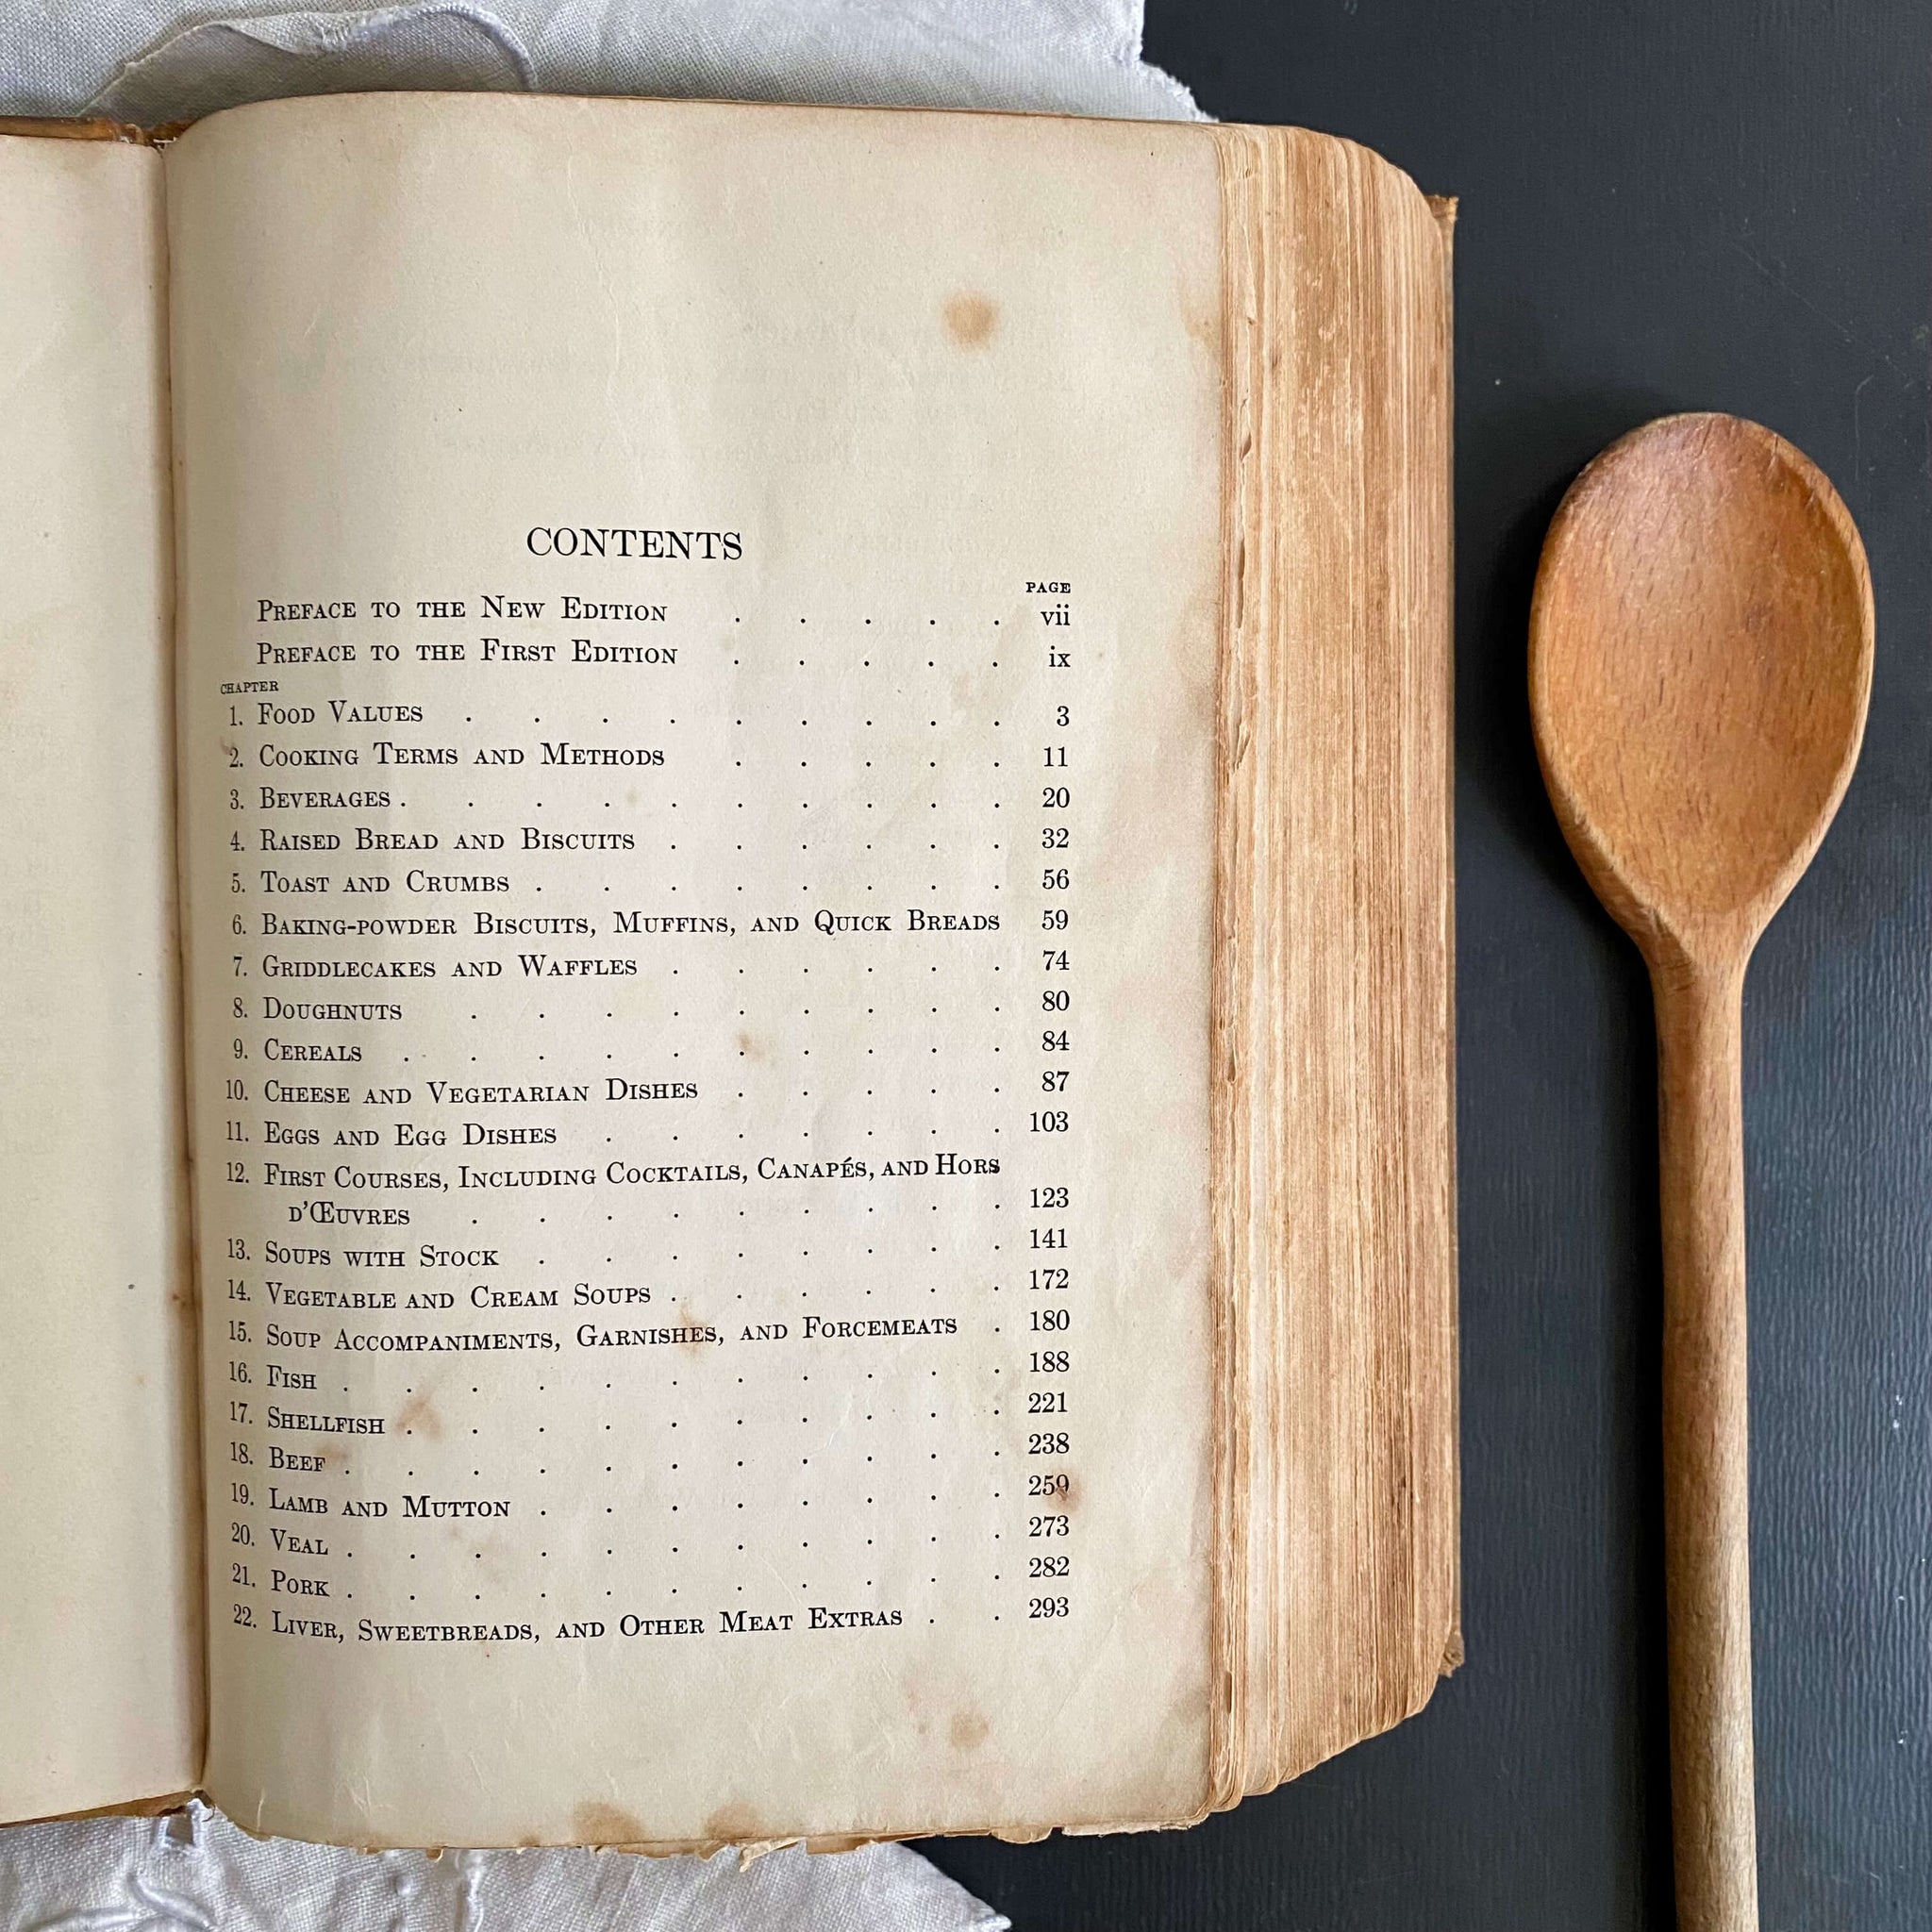 CONTENTS
PAGE
PREFACE TO THE NEW EDITION . . . . . vii
PREFACE TO THE FIRST EDITION . . . . . ix
CHAPTER
1. FOOD VALUES . . . . . . . . . 3
2. COOKING TERMS AND METHODS . . . . . 11
3. BEVERAGES . . . . . . . . . . 20
4. RAISED BREAD AND BISCUITS . . . . . . 32
5. TOAST AND CRUMBS . . . . . . . . 56
6. BAKING-POWDER BISCUITS, MUFFINS, AND QUICK BREADS 59
7. GRIDDLECAKES AND WAFFLES . . . . . . 74
8. DOUGHNUTS . . . . . . . . . 80
9. CEREALS . . . . . . . . . . 84
10. CHEESE AND VEGETARIAN DISHES . . . . . 87
11. EGGS AND EGG DISHES . . . . . . . 103
12. FIRST COURSES, INCLUDING COCKTAILS, CANAPÉS, AND HORS
D'ŒUVRES . . . . . . . . . 123
13. SOUPS WITH STOCK . . . . . . . . 141
14. VEGETABLE AND CREAM SOUPS . . . . . . 172
15. SOUP ACCOMPANIMENTS, GARNISHES, AND FORCEMEATS . 180
16. FISH . . . . . . . . . . . 188
17. SHELLFISH . . . . . . . . . . 221
18. BEEF . . . . . . . . . . . 238
19. LAMB AND MUTTON . . . . . . . . 259
20. VEAL . . . . . . . . . . . 273
21. PORK . . . . . . . . . . . 282
22. LIVER, SWEETBREADS, AND OTHER MEAT EXTRAS . . 293